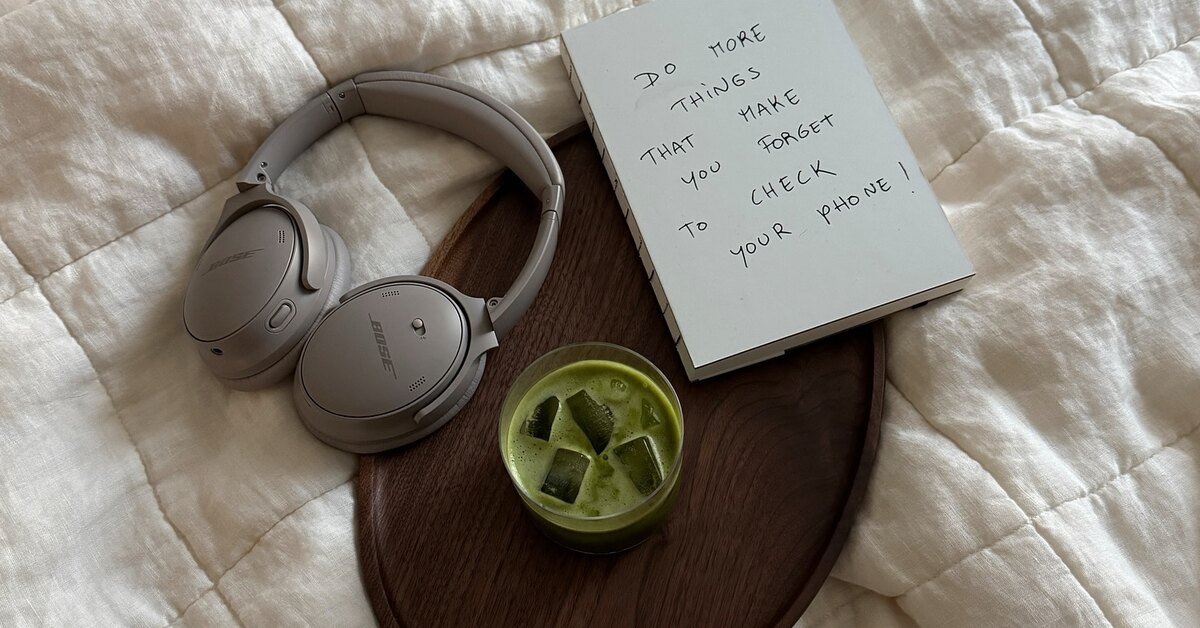 DO MORE
THINGS
THAT MAKE
YOU FORGET
TO CHECK
YOUR PHONE!
BOSE
BOSE